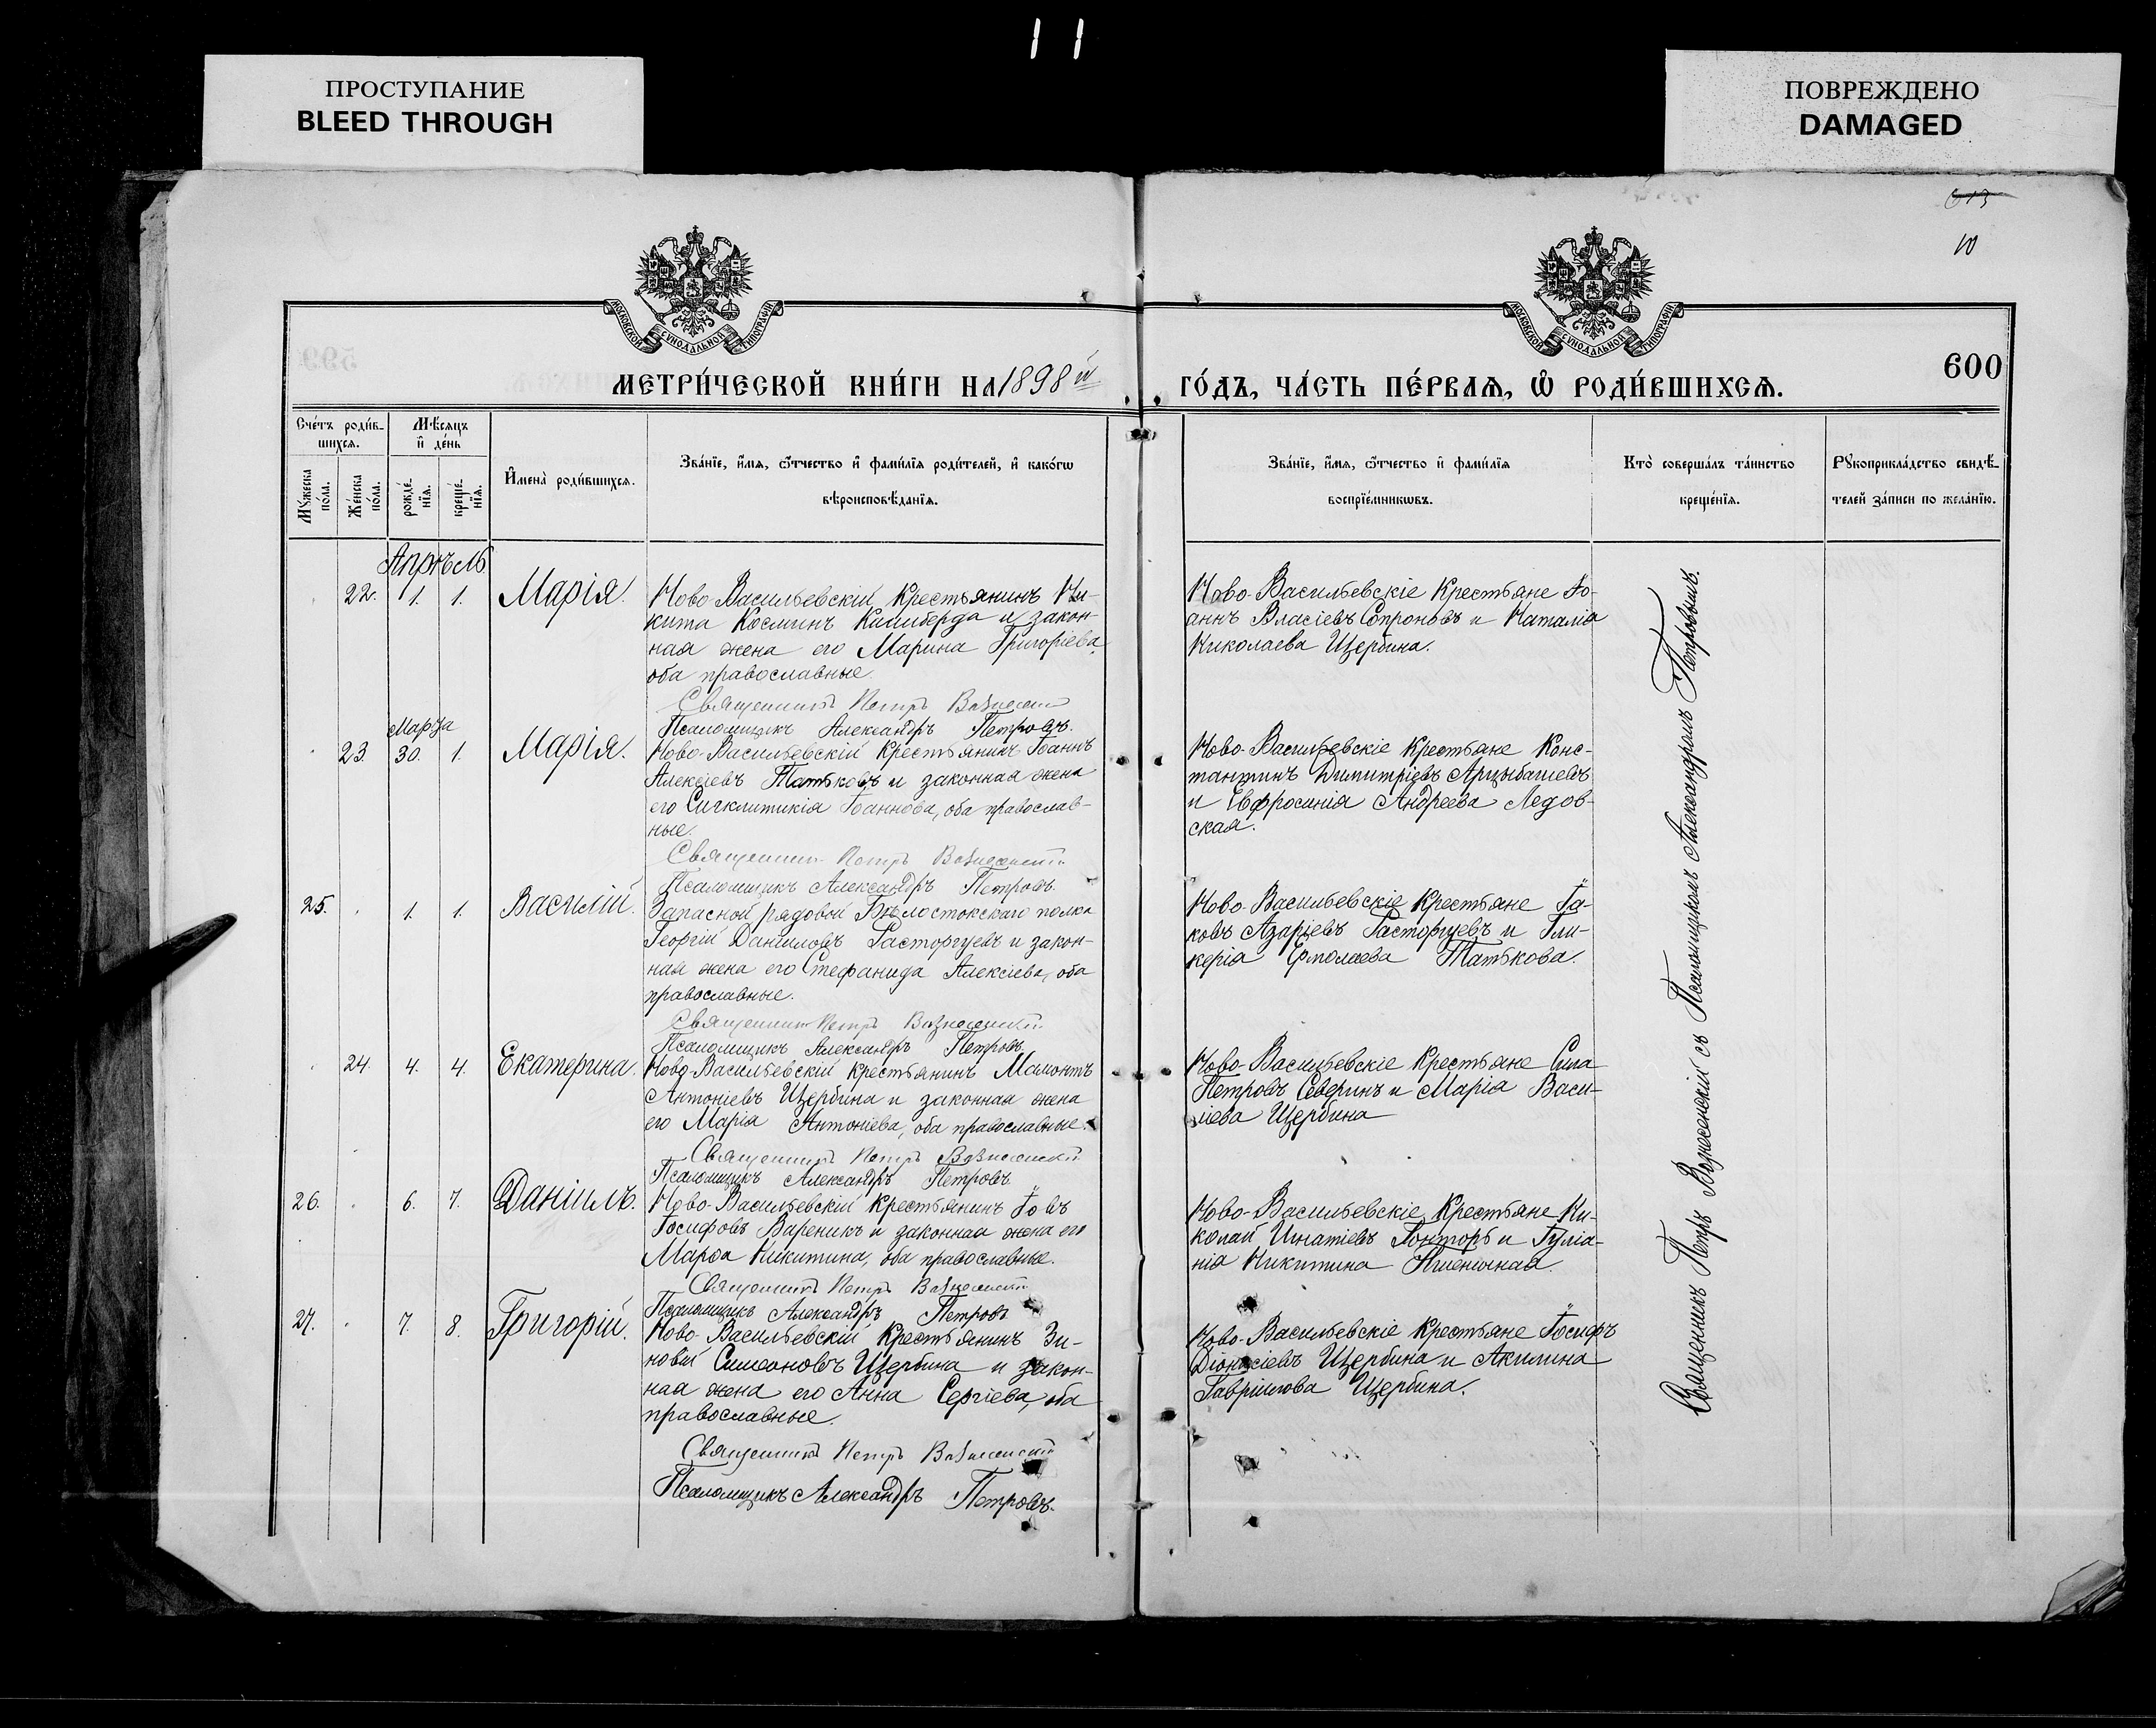 11
ПРОСТУПАНИЕ
BLEED THROUGH
ПОВРЕЖДЕНО
DAMAGED
613
10
МОСКОВСКОЙ СѴНОДАЛЬНОЙ ТИПОГРАФІИ
МОСКОВСКОЙ СѴНОДАЛЬНОЙ ТИПОГРАФІИ
600
МЕТРИ́ЧЕСКОЙ КНИ́ГИ НА 1898й
ГО́ДЪ, ЧА́СТЬ ПЕ́РВАѦ, Ѡ҆ РОДИ́ВШИХСѦ.
Сче́тъ роди́в-
шихсѧ.
Мꙋ́жеска по́ла.
Же́нска по́ла.
Мѣ́сѧцъ
и҆ де́нь
рожде́-
нїѧ.
креще́-
нїѧ.
И҆мена̀ роди́вшихсѧ.
Зва́нїе, и҆́мѧ, ѻ҆́тчество и҆ фами́лїѧ роди́телей, и҆ како́гѡ
вѣроисповѣ́данїѧ.
Зва́нїе, и҆́мѧ, ѻ҆́тчество и҆ фами́лїѧ
воспрїе́мникѡвъ.
Кто̀ соверша́лъ та́инство
креще́нїѧ.
Рꙋкоприкла́дство свидѣ́-
телей за́писи по жела́нїю.
Апрѣль
22. 1. 1. Марія.
Ново-Васильевскій Крестьянинъ Ни-
кита Косминъ и закон-
ная жена его Марина Григоріева,
оба православные.
Священникъ Петръ Вознесенскій
Псаломщикъ Александръ Петровъ.
Ново-Васильевскіе Крестьяне Іо-
аннъ Власіевъ Сопроновъ и Наталія
Николаева Щербина.
Марта
23. 30. 1. Марія.
Ново-Васильевскій Крестьянинъ Іоаннъ
Алексіевъ Татьковъ и законная жена
его Сигклитикія Іоаннова, оба православ-
ные.
Священникъ Петръ Вознесенскій
Псаломщикъ Александръ Петровъ.
Ново-Васильевскіе Крестьяне Конс-
тантинъ Димитріевъ Арцыбашевъ
и Евфросинія Андреева Ледов-
ская.
25. 1. 1. Василій.
Запасной рядовой Бѣлостокскаго полка
Георгій Даніиловъ Расторгуевъ и закон-
ная жена его Стефанида Алексіева, оба
православные.
Священникъ Петръ Вознесенскій
Псаломщикъ Александръ Петровъ.
Ново-Васильевскіе Крестьяне Іа-
ковъ Азаріевъ Расторгуевъ и Гли-
керія Ермолаева Татькова.
24. 4. 4. Екатерина.
Ново-Васильевскій Крестьянинъ Мамонтъ
Антоніевъ Щербина и законная жена
его Марія Антоніева, оба православные.
Священникъ Петръ Вознесенскій
Псаломщикъ Александръ Петровъ
Ново-Васильевскіе Крестьяне Сила
Петровъ Северинъ и Марія Васи-
ліева Щербина
26. 6. 7. Даніилъ.
Ново-Васильевскій Крестьянинъ Іовъ
Іосифовъ Вареникъ и законная жена его
Марѳа Никитина, оба православные.
Священникъ Петръ Вознесенскій
Псаломщикъ Александръ Петровъ
Ново-Васильевскіе Крестьяне Ни-
колай Игнатіевъ Гонторъ и Іуліа-
нія Никитина Пшеничная.
27. 7. 8. Григорій.
Ново-Васильевскій Крестьянинъ Зи-
новій Симеоновъ Щербина и закон-
ная жена его Анна Сергіева, оба
православные.
Священникъ Петръ Вознесенскій
Псаломщикъ Александръ Петровъ.
Ново-Васильевскіе Крестьяне Іосифъ
Діонисіевъ Щербина и Акилина
Гавріилова Щербина.
Священникъ Петръ Вознесенскій съ Псаломщикомъ Александромъ Петровымъ.